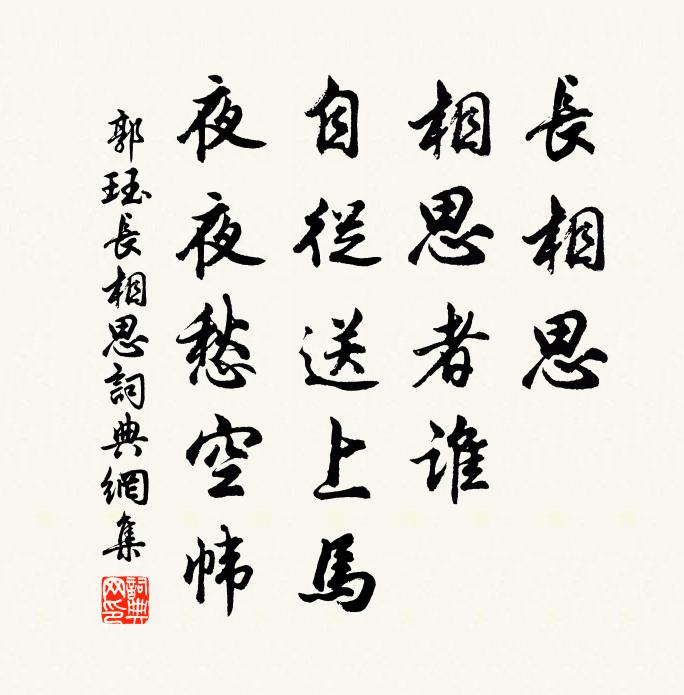 長相思
相思者誰
自從送上馬
夜夜愁空幃
郭珏長相思詞典網集
詞典
网印